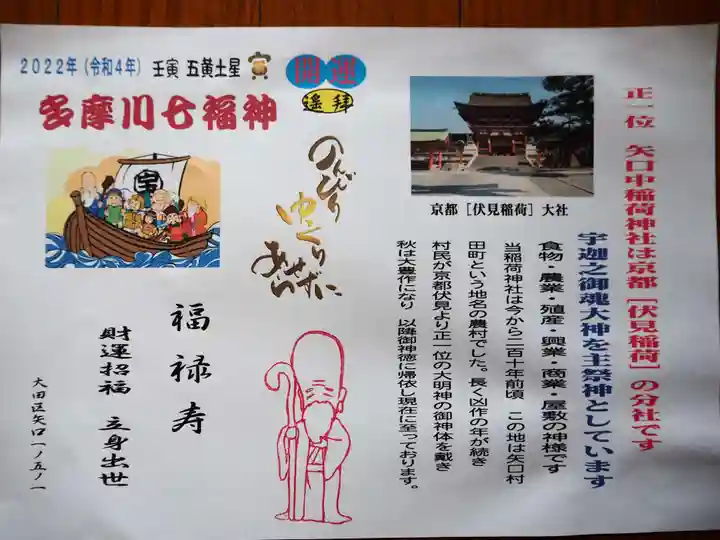 2022年(令和4年) 壬寅 五黄土星
開運
遥拝
多摩川七福神
宝
のんびり
ゆっくり
あせずに
正一位 矢口中稲荷神社は京都［伏見稲荷］の分社です
宇迦之御魂大神を主祭神としています
食物・農業・殖産・興業・商業・屋敷の神様です
当稲荷神社は今から二百十年前頃 この地は矢口村
田町という地名の農村でした。長く凶作の年が続き
村民が京都伏見より正一位の大明神の御神体を戴き
秋は大豊作になり 以降御神徳に帰依し現在に至っております。
京都［伏見稲荷］大社
福禄寿
財運招福 立身出世
大田区矢口一ノ五ノ一